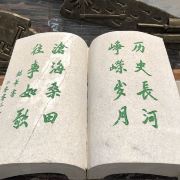 历史長河
峥嵘岁月
滄海桑田
往事如歌